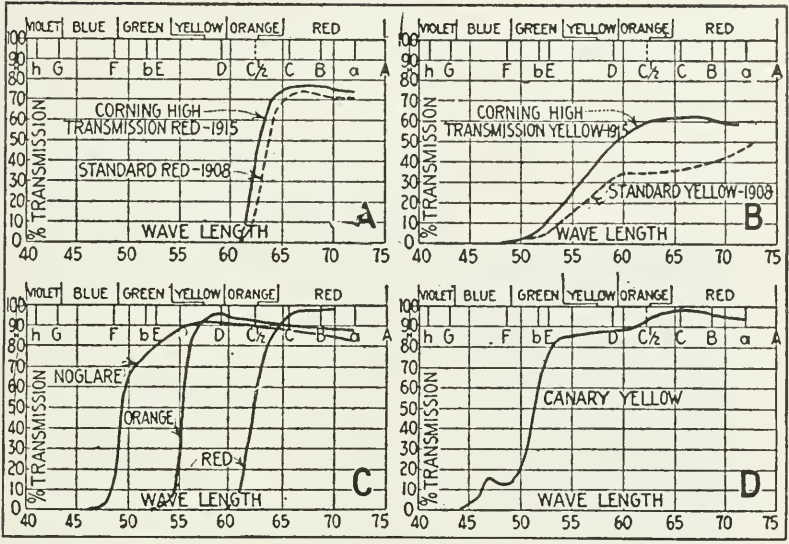 VIOLET BLUE GREEN YELLOW ORANGE RED
100
90 h G F b E D C½ C B a A
80
70
60
50
40
30
20
10
0
% TRANSMISSION
CORNING HIGH
TRANSMISSION RED-1915
STANDARD RED-1908
A
WAVE LENGTH
40 45 50 55 60 65 70 75
VIOLET BLUE GREEN YELLOW ORANGE RED
100
90
80 h G F b E D C½ C B a A
70
60
50
40
30
20
10
0
% TRANSMISSION
CORNING HIGH
TRANSMISSION YELLOW-1915
STANDARD YELLOW-1908
B
WAVE LENGTH
40 45 50 55 60 65 70 75
VIOLET BLUE GREEN YELLOW ORANGE RED
100
90 h G F b E D C½ C B a A
80
70
60
50
40
30
20
10
0
% TRANSMISSION
NOGLARE
ORANGE
RED
C
WAVE LENGTH
40 45 50 55 60 65 70 75
VIOLET BLUE GREEN YELLOW ORANGE RED
100
90 h G F b E D C½ C B a A
80
70
60
50
40
30
20
10
0
% TRANSMISSION
CANARY YELLOW
D
WAVE LENGTH
40 45 50 55 60 65 70 75